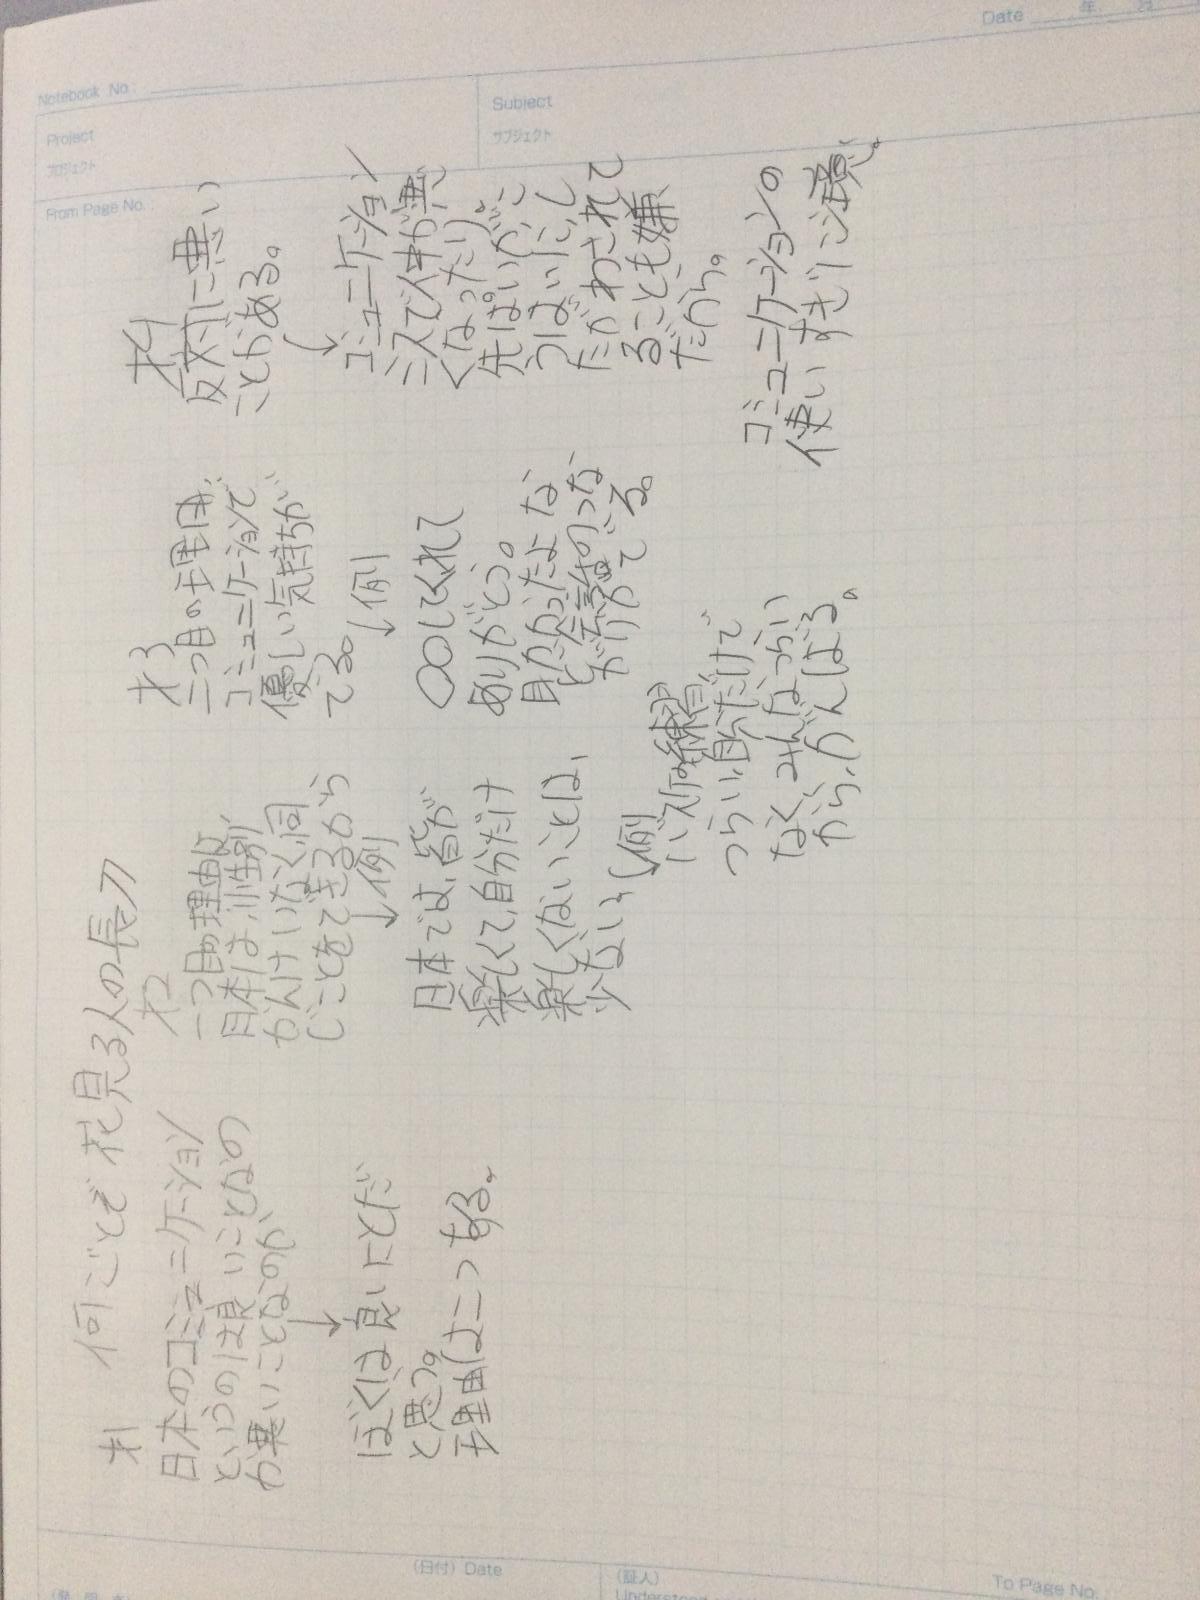 何ごとぞ花見る人の長刀
オ1
日本のコミュニケーション
というのは良いことなの
か悪いことなのか
ぼくは良いことだ
と思う。
理由は二つある。
オ2
一つ目の理由は、
日本は、性別
かんけいなく、同
じことをできるから
例
日本では、皆が
楽しくて、自分だけ
楽しくないことは、
少ない。
例
バスの練習
つらい、自分だけで
なく、みんなつらい
から、がんばる。
オ3
二つ目の理由は、
コミュニケーションで
優しい気持ちが
でる。
例
〇〇してくれて
ありがとう。
助かったよな
ど会話のつな
がりがでる。
オ4
反対に悪い
ことがある。
コミュニケーション
ミスで人手が悪
くなったり。
先ぱいがこ
うはいにし
たがわされて
ることも嫌
だから。
コミュニケーションの
使いすぎに注意。
Notebook No.
Project
プロジェクト
From Page No.
Subject
サブジェクト
Date 年 月
(日付) Date
(証人)
To Page No.